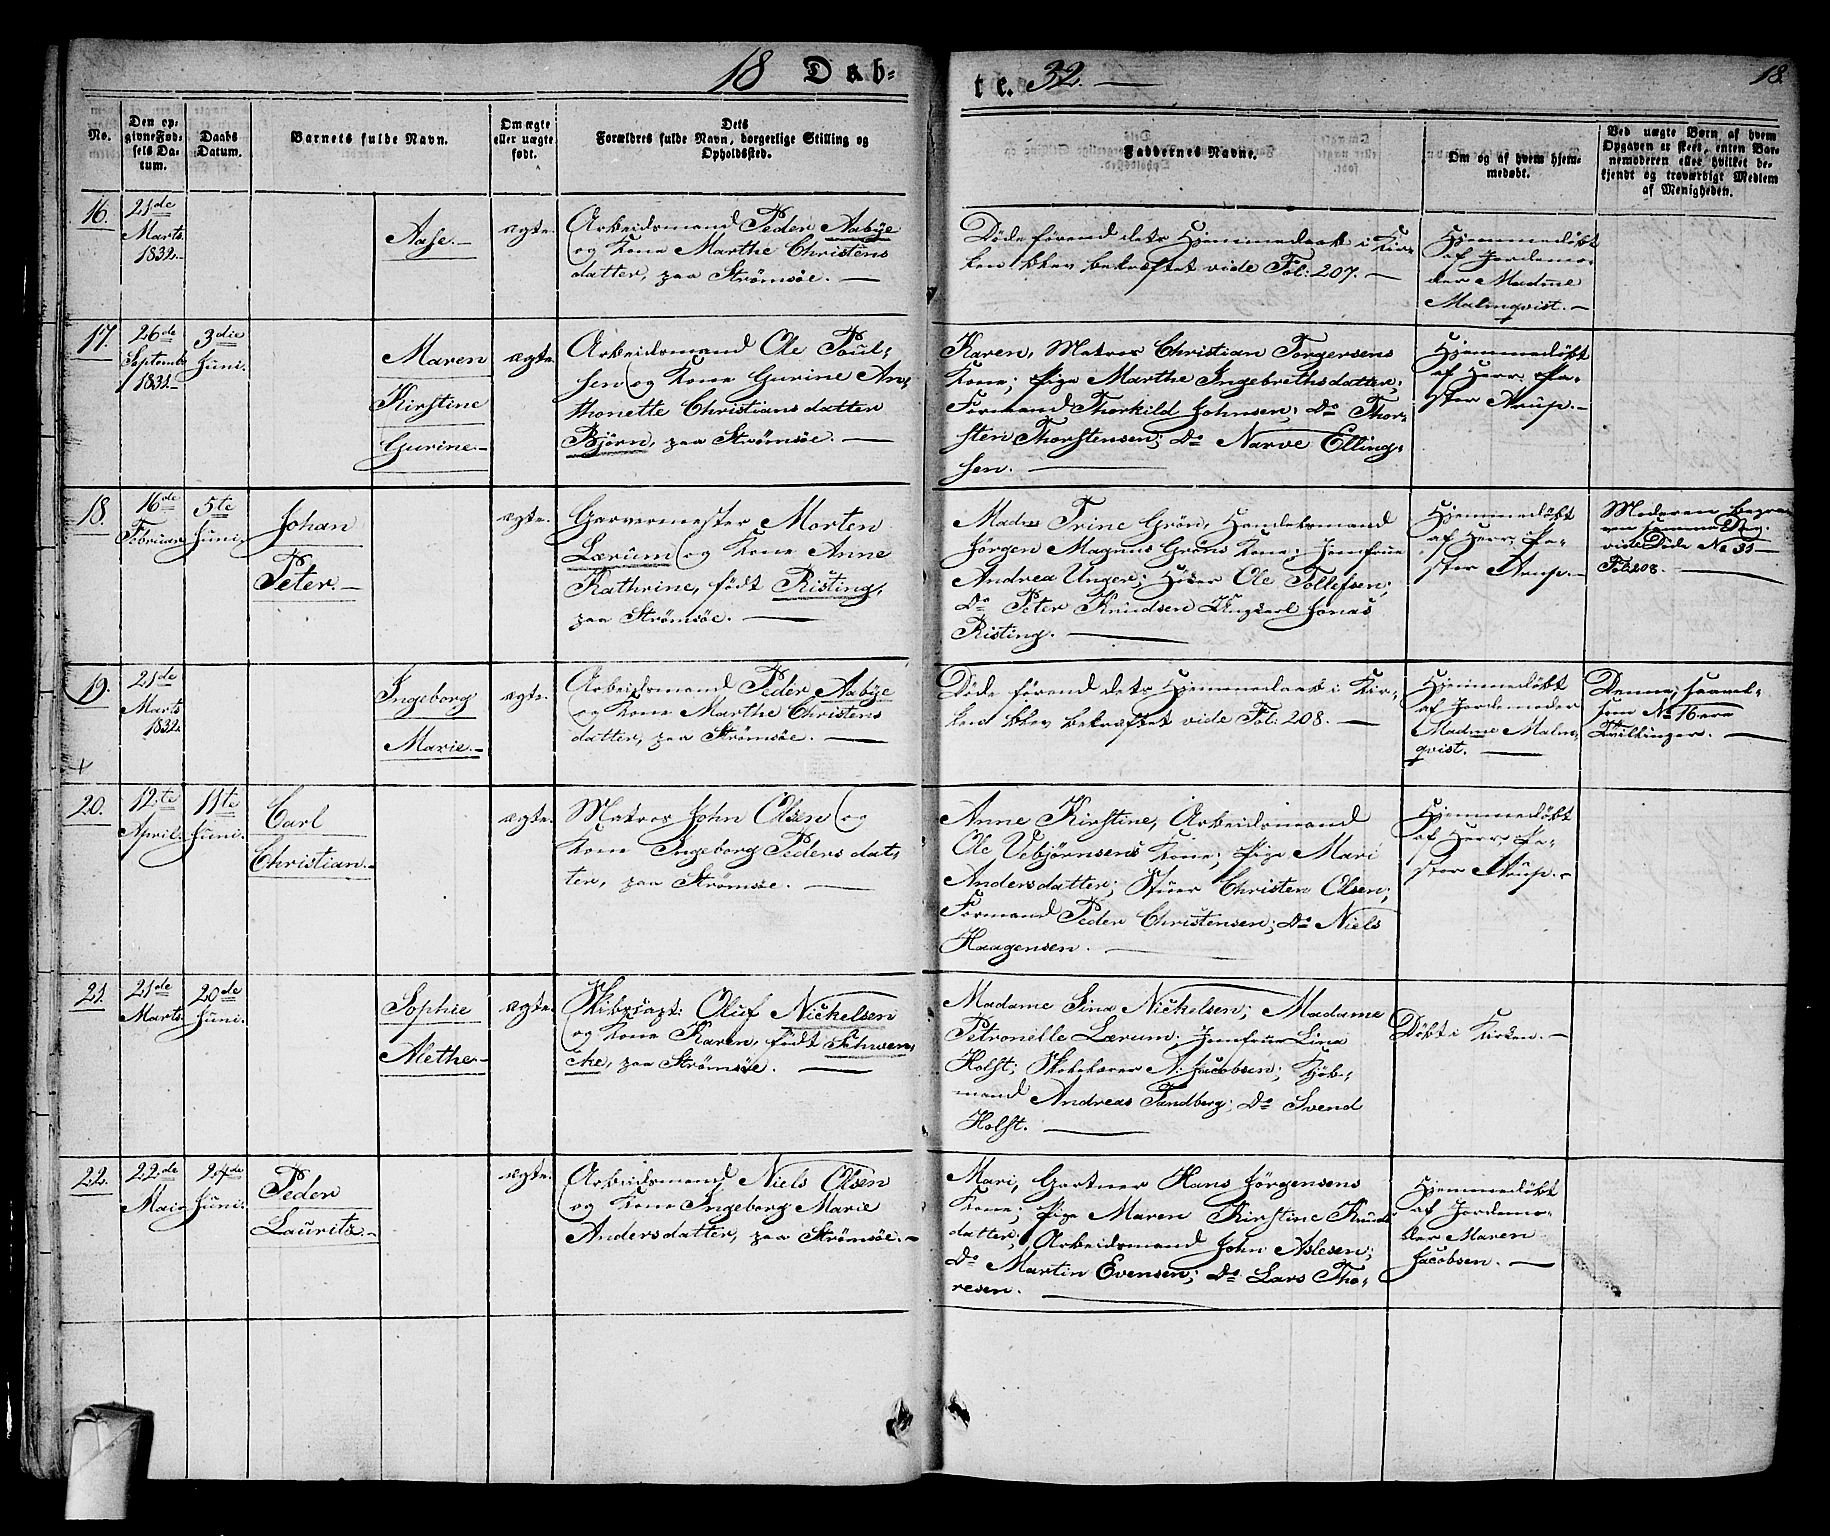 18 Døb-
te. 32.
18.
No.
Den op-
givne Fød-
sels Da-
tum.
Daabs
Datum.
Barnets fulde Navn.
Om ægte
eller uægte
født.
Dets
Forældres fulde Navn, borgerlige Stilling og
Opholdssted.
Faddernes Navne.
Om og af hvem hjem-
medøbt.
Ved uægte Børn af hvem
Opgaven er skeet, enten Bar-
nemoderen eller hvilket be-
kjendt og troværdigt Medlem
af Menigheden.
16.
21de
Marts
1832.
Aase.
ægte.
Arbeidsmand Peder Aabÿe
og Kone Marthe Christens
datter, paa Strømsöe.
Døde førend dets Hjemmedaab i Kir-
ken blev bekræftet vide Fol: 207.
Hjemmedøbt
af Jordemo-
der Madme
Malmqvist.
17.
26de
Septembr
1831
3die
Juni.
Maren
Kirstine
Gurine.
ægte.
Arbeidsmand Ole Poul-
sen og Kone Gurine An-
thonette Christiansdatter
Björn, paa Strømsöe.
Karen, Matros Christian Torgersens
Kone; Pige Marthe Ingebrethsdatter;
Formand Thorkild Johnsen; Do Thor-
sten Thorstensen; Do Narve Elling-
sen.
Hjemmedøbt
af Herr Pa-
stor Arup.
18.
16de
Februar
5te
Juni.
Johan
Peter.
ægte.
Garvermester Morten
Lærum og Kone Anne
Kathrine, født Risting,
paa Strømsöe.
Mads Trine Grön, Handelsmand
Jörgen Magnus Gröns Kone; Jomfrue
Andrea Unger; Hÿrer Ole Tollefsen;
Do Peter Knudsen Ungkarl Jonas
Risting.
Hjemmedøbt
af Herr Pa-
stor Arup.
Moderen begra-
ven samme Dag.
vide Døde No 35
Fol: 208.
19.
21de
Marts
1832.
Ingeborg
Marie.
ægte.
Arbeidsmand Peder Aabÿe
og Kone Marthe Christens
datter, paa Strømsöe.
Døde førend dets Hjemmedaab i Kir-
ken blev bekræftet vide Fol: 208.
Hjemmedøbt
af Jordemoder
Madme Malm-
qvist.
Denne, saavel-
som No 16 ere
Tvillinger.
20.
12te
April.
11te
Juni.
Carl
Christian.
ægte.
Matros John Olsen og
Kone Ingeborg Pedersdat-
ter, paa Strømsöe.
Anne Kirstine, Arbeidsmand
Ole Vebjörnsens Kone; Pige Mari
Andersdatter; Stuer Christen Olsen;
Formand Peder Christensen; Do Niels
Haagensen.
Hjemmedøbt
af Herr Pa-
stor Arup.
21.
21de
Marts.
20de
Juni.
Sophie
Alethe
ægte.
Skibscapt: Oluf Nickelsen
og Kone Karen, født Schwen-
cke, paa Strømsöe.
Madame Sina Nickelsen; Madame
Petronelle Lærum; Jomfrue Lina
Holst; Skolelærer N: Jacobsen; Kjöb-
mand Andreas Tandberg; Do Svend
Holst.
Døbt i Kirken.
22.
22de
Mai
24de
Juni.
Peder
Lauritz.
ægte.
Arbeidsmand Niels Olsen
og Kone Ingeborg Marie
Andersdatter, paa Strømsöe.
Mari, Gartner Hans Jörgensens
Kone; Pige Maren Kirstine Knuds
datter; Arbeidsmand John Aslesen;
Do Martin Evensen; Do Lars Tho-
resen.
Hjemmedøbt
af Jordemo-
der Maren
Jacobsen.